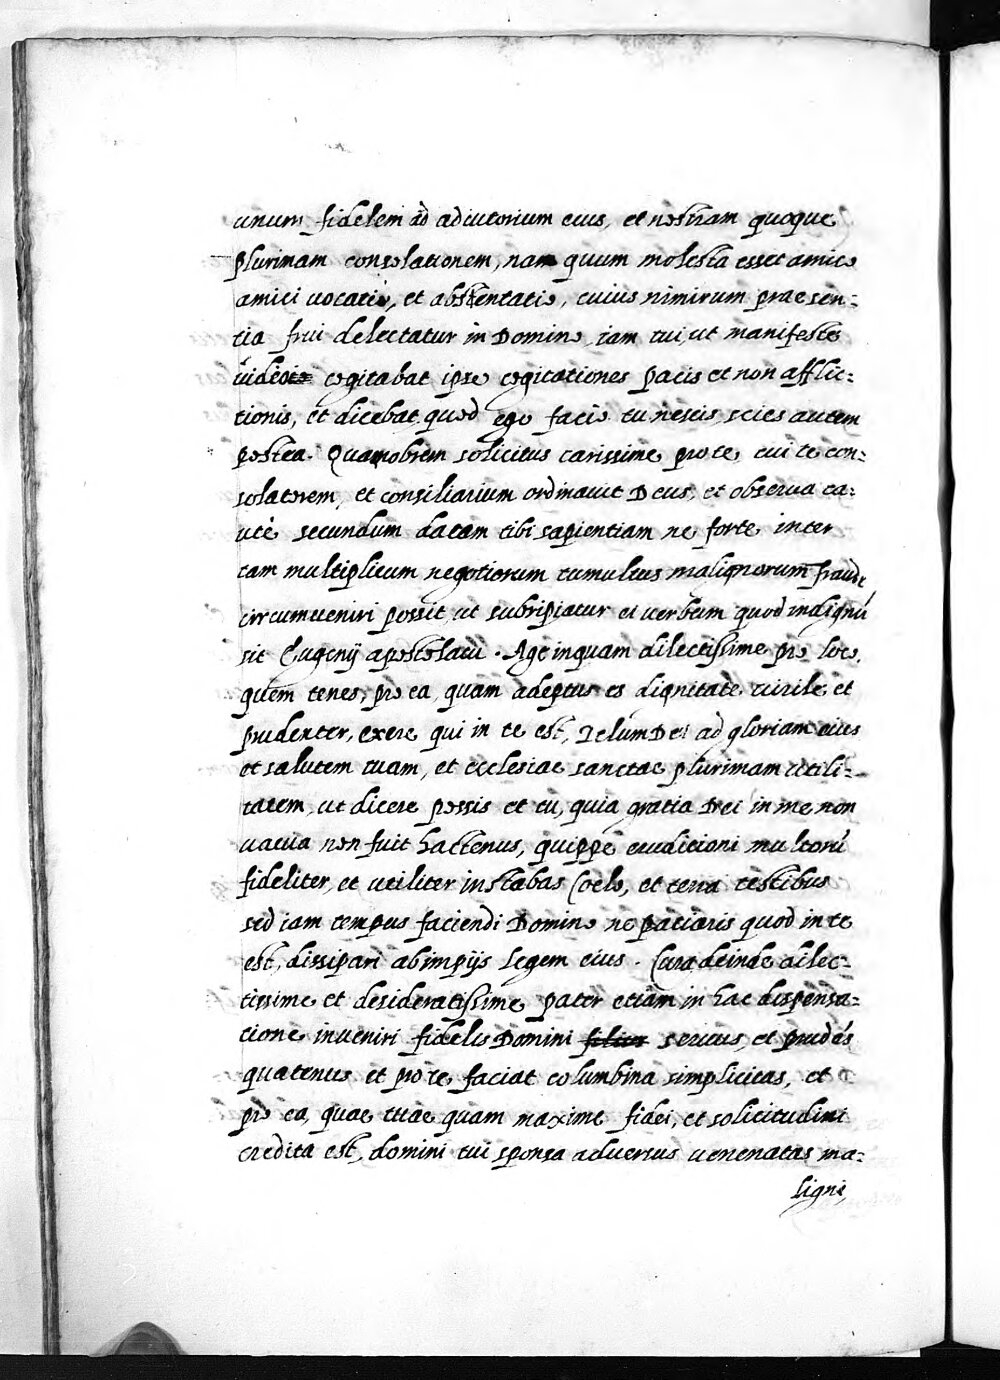 unum fidelem ad adiutorium eius, et nostram quoque
plurimam consolationem, nam quum molesta esset amico
amici uocatio, et abstentatio, cuius nimirum praesen:
tia frui delectatur in Domino iam tui, ut manifeste
uideo cogitabat ipse cogitationes pacis et non afflic:
tionis, et dicebat quod ego facio tu nescis, scies autem
postea. Quamobrem solicitus carissime pro te, cui te con:
solatorem, et consiliarium ordinauit Deus, et obserua ca:
utè secundum datam tibi sapientiam ne forte inter
tam multiplicum negotiorum tumultus malignorum fraude
circumueniri possit, ut subripiatur ei uerbum quod indignũ
sit Eugenij apostolatu. Age inquam dilectissime pro loco,
quem tenes, pro ea, quam adeptus es dignitate, uirile, et
prudenter, exere qui in te est, Zelum Dei ad gloriam eius
et salutem tuam, et ecclesiae sanctae plurimam utili:
tatem, ut dicere possis et tu, quia gratia Dei in me non
uacua non fuit hactenus, quippe eruditioni multorũ
fideliter, et utiliter instabas Coelo, et terra testibus
sed iam tempus faciendi Domino ne patiaris quod in te
est, dissipari ab impijs legem eius. Cura deinde dilec:
tissime et desideratissime pater etiam in hac dispensa:
tione inueniri fidelis Domini seruus, et prudẽs
quatenus et pro te faciat columbina simplicitas, et
pro ea, quae tuae quam maxime fidei, et solicitudini
credita est, domini tui sponsa aduersus uenenatas ma:
ligni,